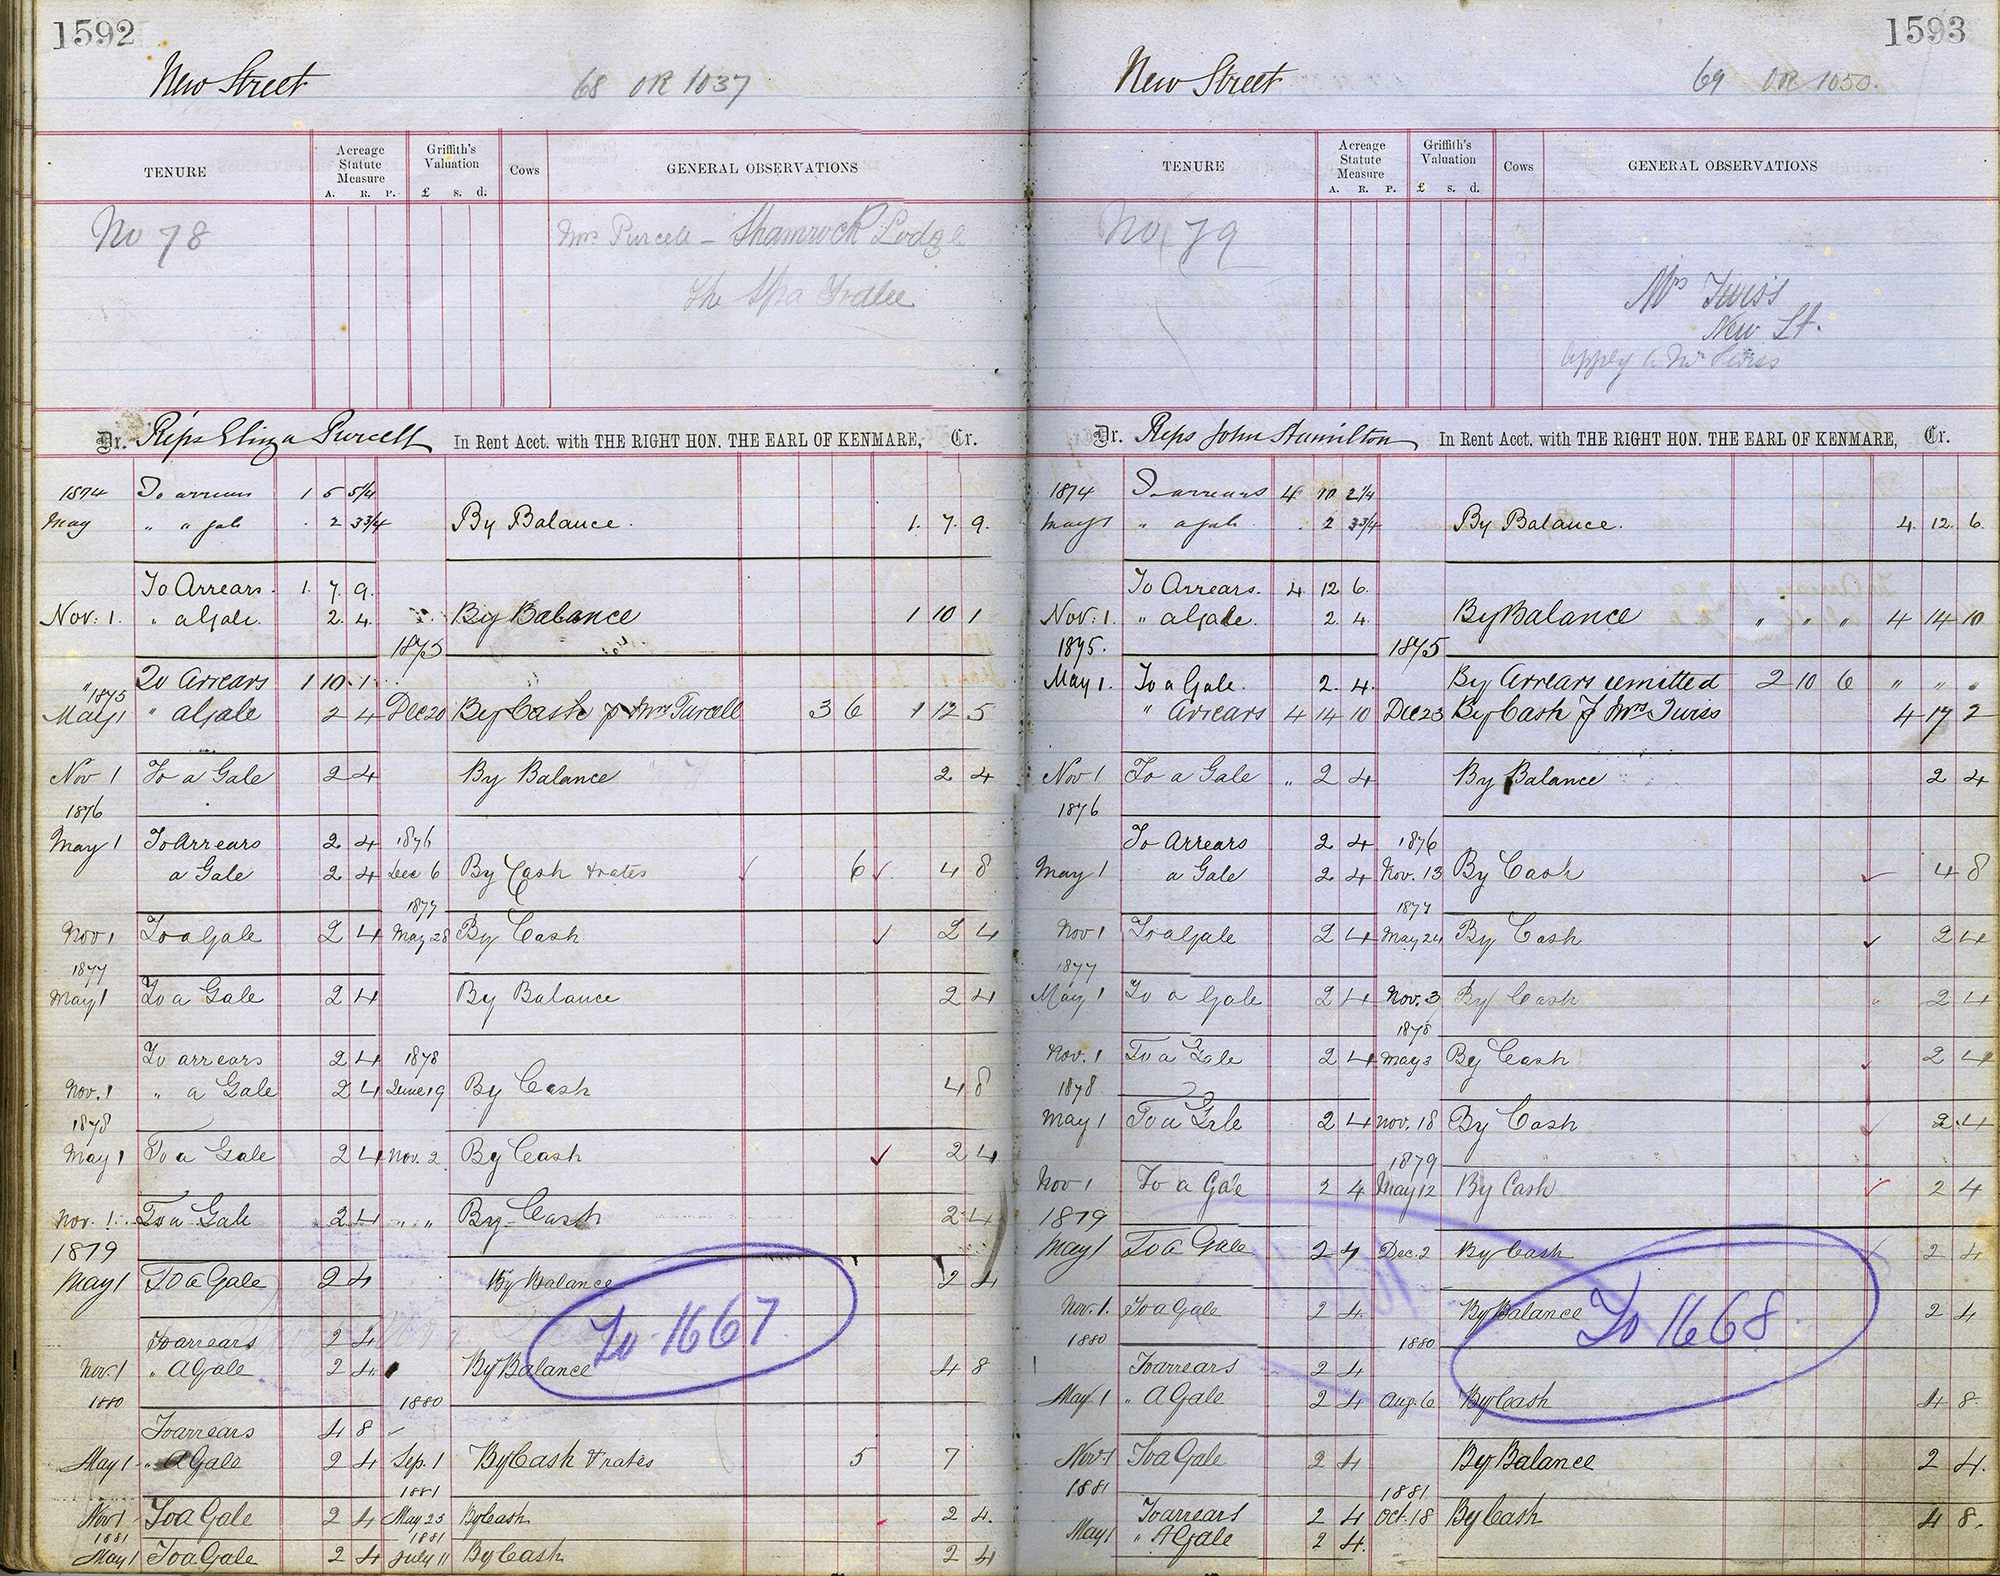 1592
New Street 68 OR 1037
TENURE Acreage Statute Measure A. R. P. Griffith's Valuation £ s. d. Cows GENERAL OBSERVATIONS
No 78 Mrs Purcell – Shamrock Lodge
The Spa Tralee
Dr. Reps Eliza Purcell In Rent Acct. with THE RIGHT HON. THE EARL OF KENMARE, Cr.
1874 To arrears 1 5 5¼
May " a gale . 2 3¾ By Balance. 1. 7. 9.
To Arrears. 1. 7. 9.
Nov: 1. " a Gale. 2. 4. By Balance 1 10 1
1875
" To Arrears 1 10 . 1
1875
May 1 " a Gale 2 4 Dec 20 By Cash p Mrs Purcell 3 6 1 12 5
Nov 1 To a Gale 2 4 By Balance 2 4
1876
May 1 To Arrears 2 4 1876
a Gale 2 4 Dec 6 By Cash & rates 6 4 8
1877
Nov 1 To a Gale 2 4 May 28 By Cash 2 4
1877
May 1 To a Gale 2 4 By Balance 2 4
To arrears 2 4 1878
Nov. 1 " a Gale 2 4 June 19 By Cash 4 8
1878
May 1 To a Gale 2 4 Nov. 2. By Cash 2 4
Nov. 1. To a Gale 2 4 " " By Cash 2 4
1879
May 1 To a Gale 2 4 By Balance 2 4
To 1667
To arrears 2 4
Nov. 1 " A Gale 2 4 By Balance 4 8
1880 1880
To arrears 4 8
May 1 " A Gale 2 4 Sep. 1 By Cash & rates 5 7
1881
Nov 1 To a Gale 2 4 May 25 By Cash 2 4.
1881 1881
May 1 To a Gale 2 4 July 11 By Cash 2 4
1593
New Street 69 OR 1050.
TENURE Acreage Statute Measure A. R. P. Griffith's Valuation £ s. d. Cows GENERAL OBSERVATIONS
No 79
Mrs Twiss
New St.
apply to Mr Twiss
Dr. Reps John Hamilton In Rent Acct. with THE RIGHT HON. THE EARL OF KENMARE, Cr.
1874 To arrears 4 10 2¼
May 1 " a gale . 2 3¾ By Balance. 4. 12. 6.
To Arrears. 4. 12 6.
Nov: 1. " a Gale. 2. 4. By Balance " " " 4 14 10
1875. 1875
May 1. To a Gale. 2. 4. By Arrears remitted 2 10 6 " " "
" Arrears 4 14 10 Dec 23 By Cash p Mrs Twiss 4 17 2
Nov 1 To a Gale " 2 4 By Balance 2 4
1876
To Arrears 2 4 1876
May 1 a Gale 2 4 Nov. 13 By Cash 4 8
1877
Nov 1 To a Gale 2 4 May 24 By Cash 2 4
1877
May 1 To a Gale 2 4 Nov. 3 By Cash 2 4
1878
Nov. 1 To a Gale 2 4 May 3 By Cash 2 4
1878
May 1 To a Gale 2 4 Nov. 18 By Cash 2 4
1879
Nov 1 To a Gale 2 4 May 12 By Cash 2 4
1879
May 1 To a Gale 2 4 Dec. 2 By Cash 2 4
Nov. 1. To a Gale 2 4. By Balance 2 4
To 1668.
1880 1880
To arrears 2 4
May 1 " A Gale 2 4 Aug. 6 By Cash 4 8.
Nov. 1 To a Gale 2 4 By Balance 2 4.
1881 1881
To arrears 2 4 Oct. 18 By Cash 4 8.
May 1 " A Gale 2 4.